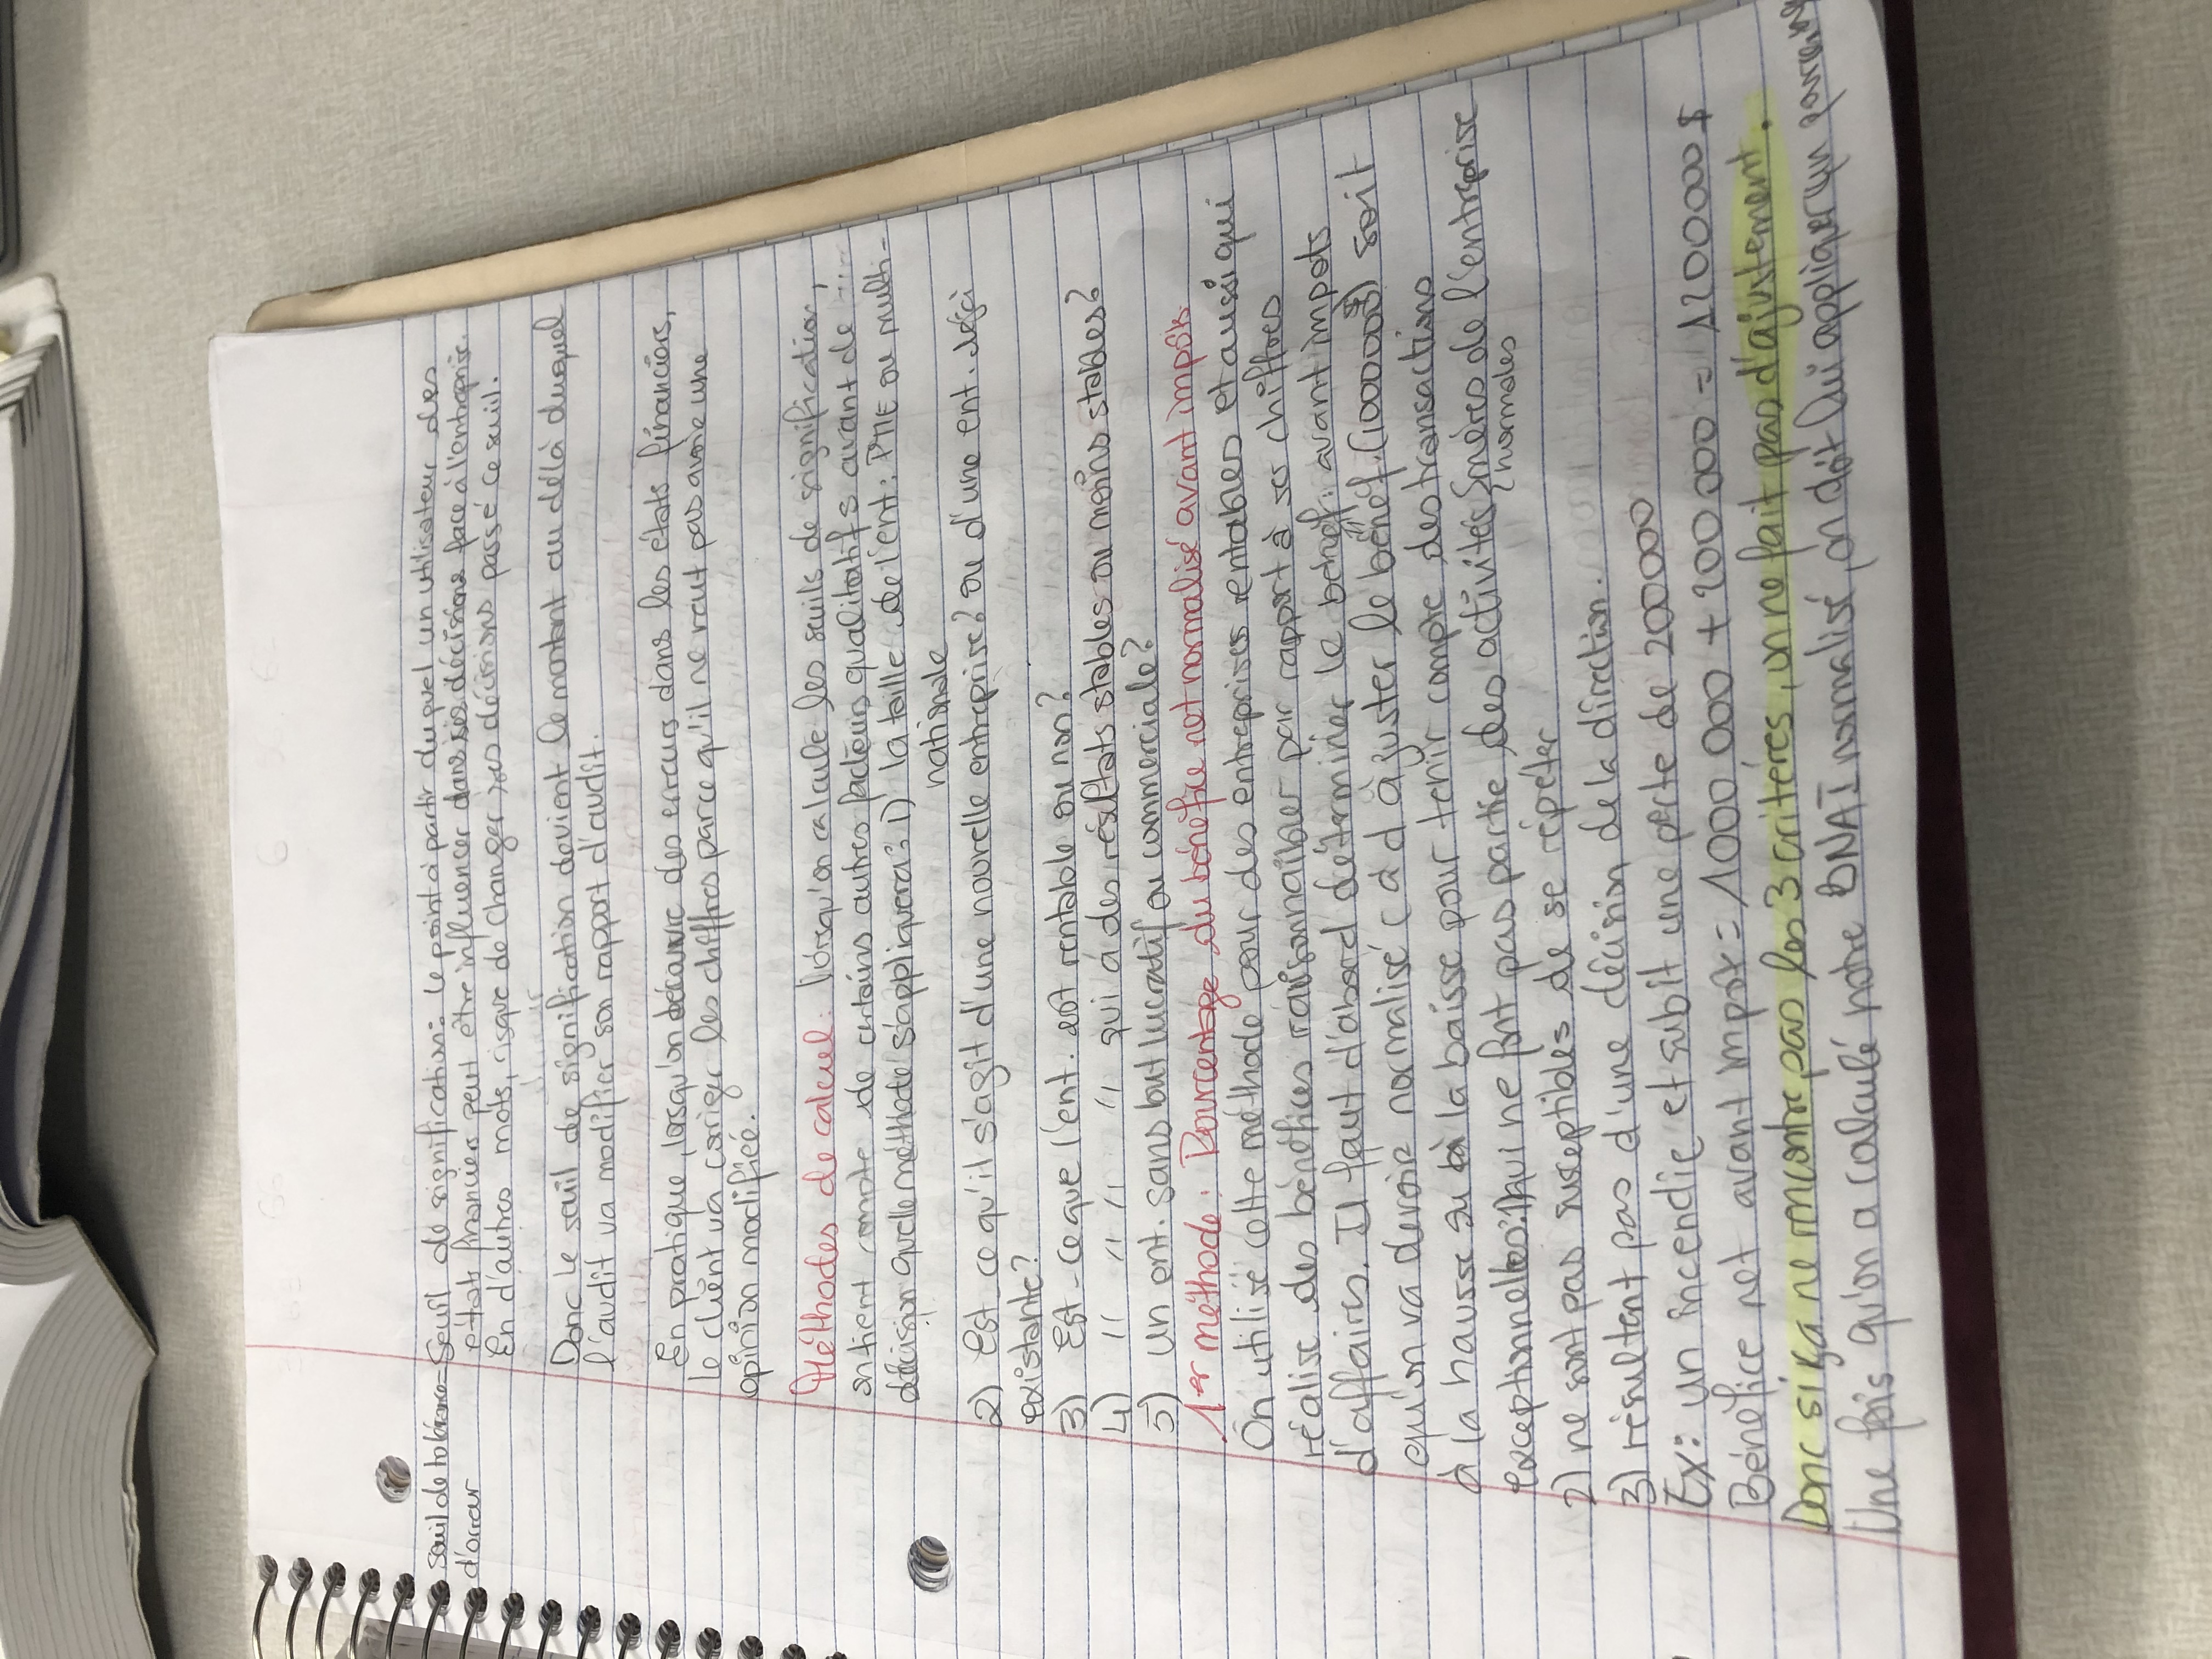 Seuil de tolérance = Seuil de signification : le point à partir duquel un utilisateur des
d'erreur états financier peut être influencer dans ses décisions face à l'entreprise.
En d'autres mots, risque de changer ses décisions passé ce seuil.
Donc le seuil de signification devient le montant au délà duquel
l'audit va modifier son rapport d'audit.
En pratique, lorsqu'on découvre des erreurs dans les états financiers,
le client va corriger les chiffres parce qu'il ne veut pas avoir une
opinion modifiée.
Méthodes de calcul : lorsqu'on calcule les seuils de signification,
on tient compte de certains autres facteurs qualitatifs avant de
décision quelle méthode s'appliquera : 1) la taille de l'ent : PME ou multi-
nationale
2) Est ce qu'il s'agit d'une nouvelle entreprise? ou d'une ent. déjà
existante?
3) Est-ce que l'ent. est rentable ou non?
4) " " " " qui a des résultats stables ou moins stables?
5) un ent. sans but lucratif ou commerciale?
1er méthode : Pourcentage du bénéfice net normalisé avant impôts
On utilise cette méthode pour des entreprises rentables et aussi qui
réalise des bénéfices raisonnables par rapport à ses chiffres
d'affaires. Il faut d'abord déterminer le bénéf. avant impots
qu'on va devoir normalisé c à d ajuster le bénéf. (1000000$) soit
à la hausse ou à la baisse pour tenir compte des transactions
exceptionnelles : 1) qui ne font pas partie des activités normales de l'entreprise
normales
2) ne sont pas susceptibles de se répéter
3) résultent pas d'une décision de la direction.
Ex : un incendie et subit une perte de 200000
Bénéfice net avant impôt = 1000 000 + 200 000 = 1200000 $
Donc si ça ne rencontre pas les 3 critères, un ne fait pas d'ajustement.
Une fois qu'on a calculé notre BNAI normalisé, on doit lui appliquer un